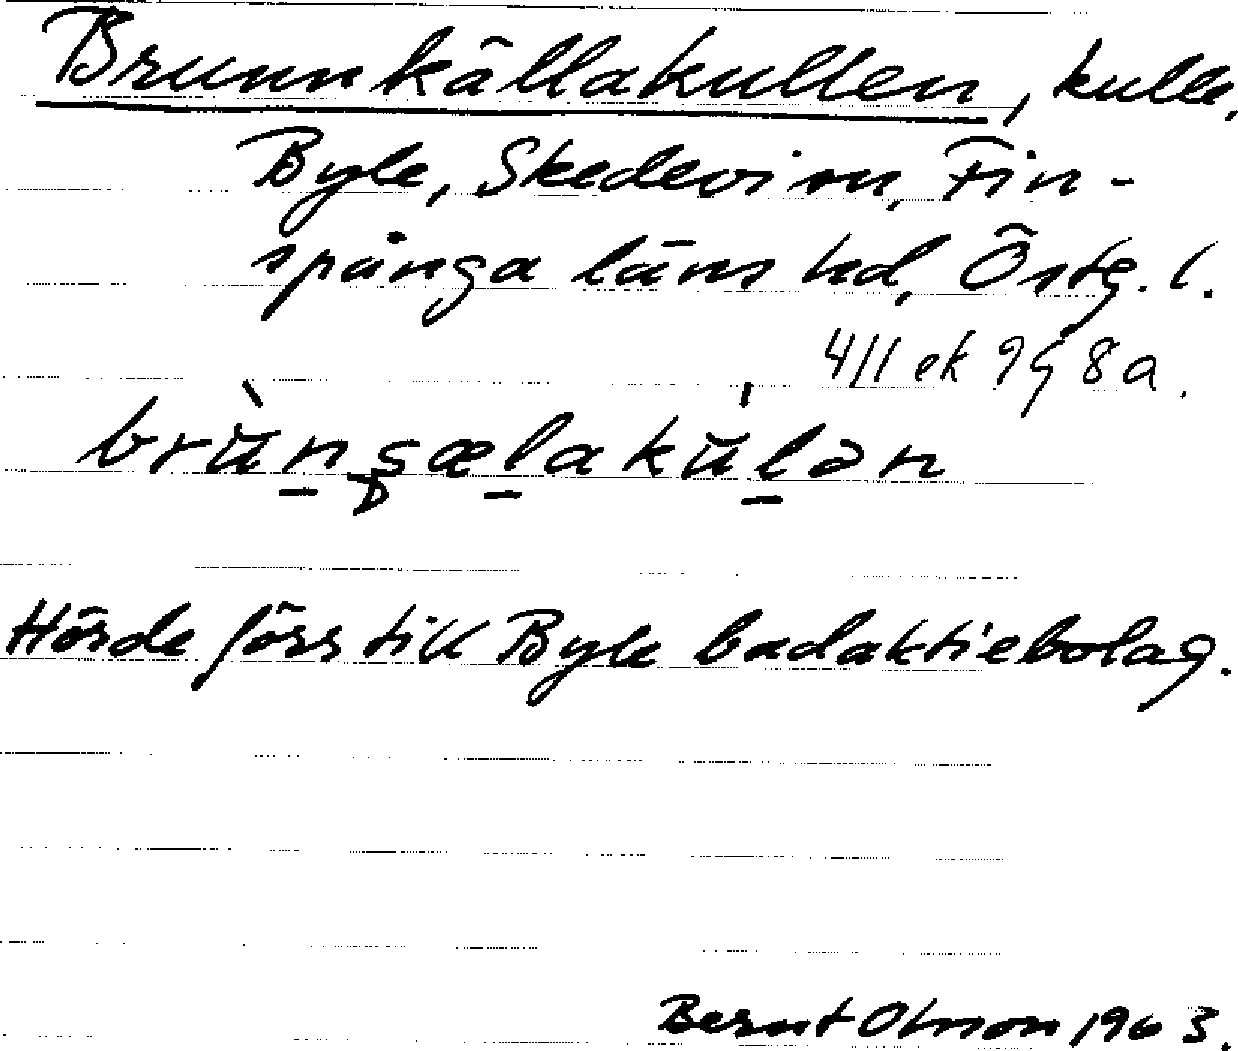 Brunnkällakullen, kulle,
Byle, Skedevi sn, Fin-
spånga läns hd, Östg. l.
4/11 ek 9g 8a.
Hörde förs till Byle badaktiebolag.
Bernt Olsson 1963.